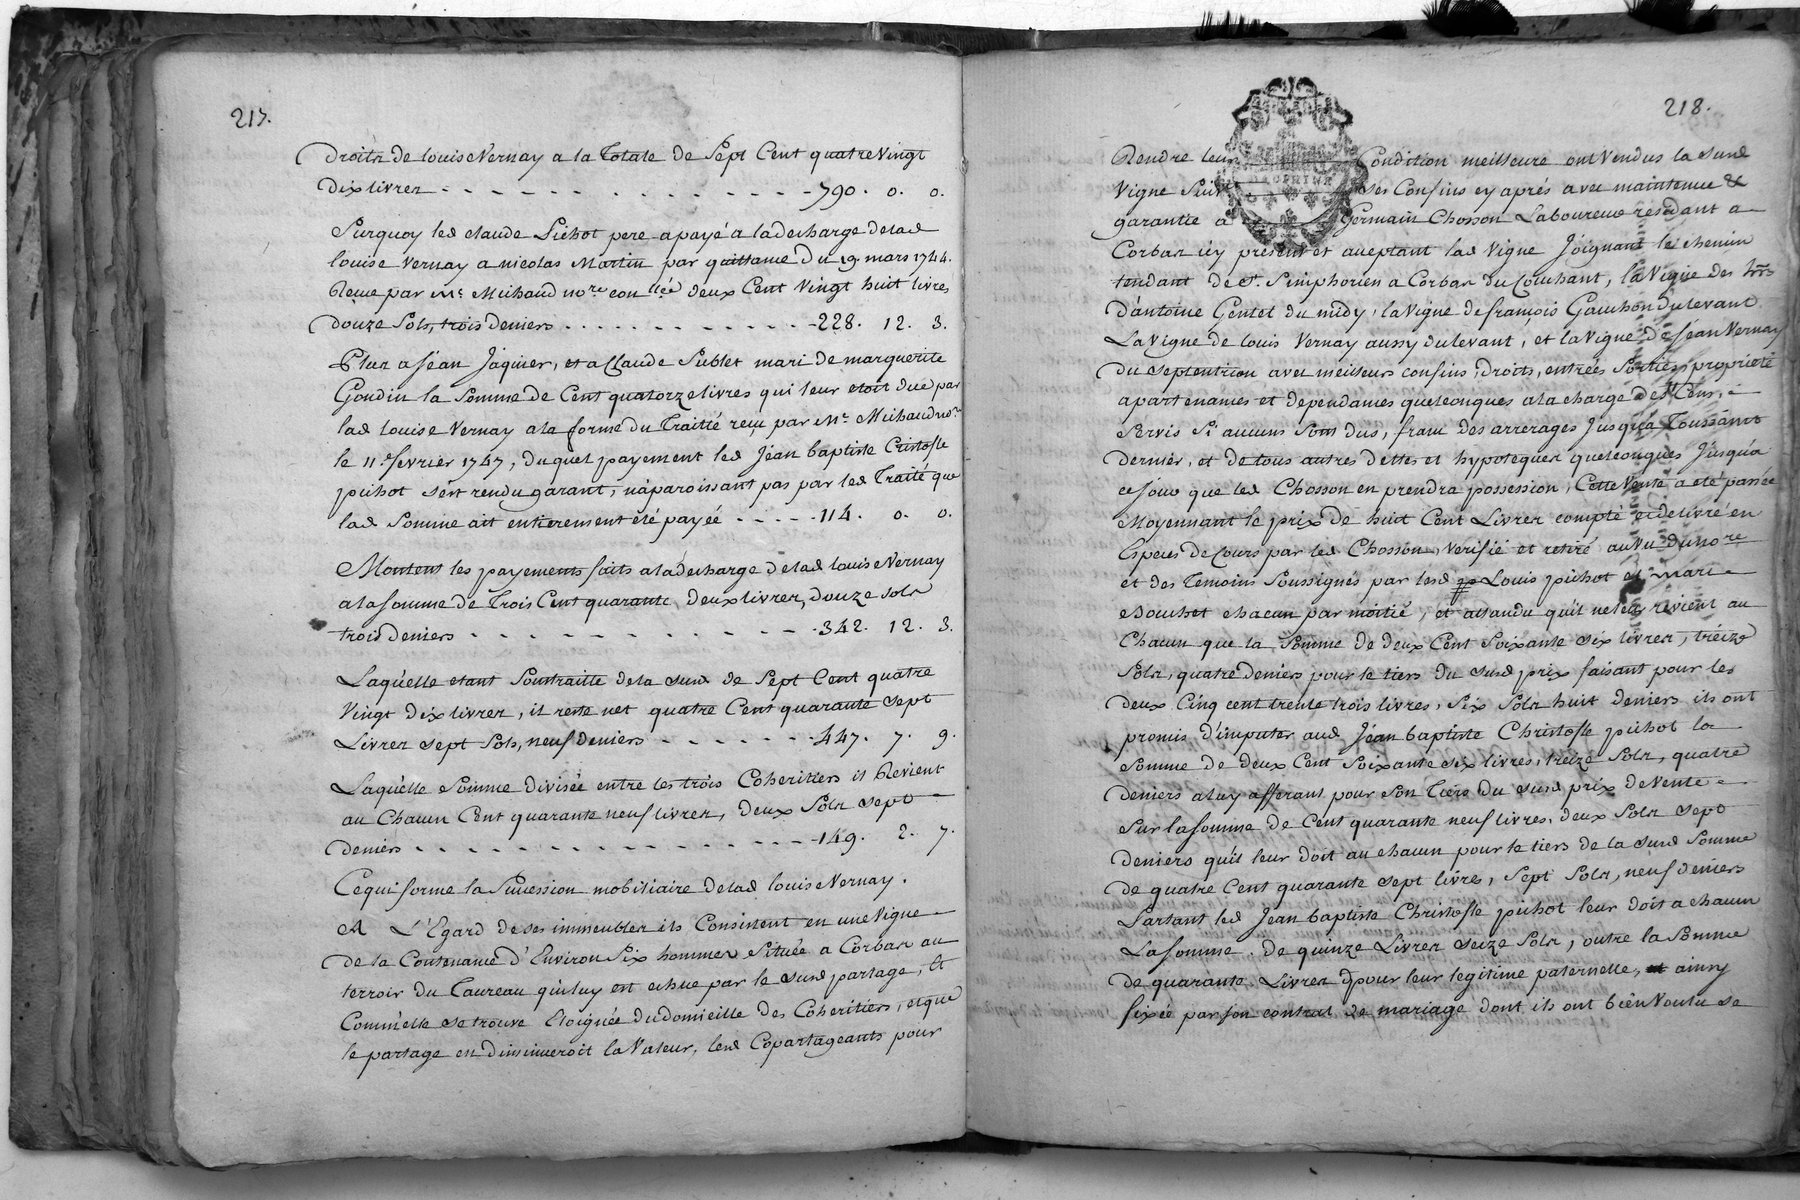 217.
Droits de louise Vernay a la Totale de Sept Cent quatre Vingt
dix livres - - - - - - - - - - - - 790. 0. 0.
Surquoy led claude Pichot pere a payé a la decharge delad
louise Vernay a nicolas Martin par quittance du 19 mars 1744.
Reçue par Me Michaud nore con llée deux Cent Vingt huit livres
douze Sols, trois deniers . . . . . . . . . . . . 228. 12. 3.
Plus a Jéan Jaquier, et a Claude Sublet mari de marguerite
Goudin la Somme de Cent quatorze livres qui leur etoit due par
lad louise Vernay a la forme du Traitté reçu par Me Michaud nore
le 11e fevrier 1747, duquel payement led Jéan baptiste Cristofle
pichot s'est rendu garant, n'aparoissant pas par led Traité que
lad Somme ait entierement été payée - - - - 114. 0. 0.
Montent les payements faits a la décharge delad louise Vernay
a la somme de Trois Cent quarante deux livres, douze sols
trois deniers - - - - - - - - - - - - 342. 12. 3.
Laquelle etant Soustraitte de la susd de Sept Cent quatre
Vingt dix livres, il reste net quatre Cent quarante sept
Livres sept Sols, neuf deniers - - - - - - - 447. 7. 9.
Laquelle Somme divisée entre les trois Coheritiers il Revient
au Chacun Cent quarante neuf livres, deux Sols sept
deniers - - - - - - - - - - - - - - - 149. 2. 7.
Ce qui forme la Succession mobiliaire delad louise Vernay.
A L'Egard de ses immeubles ils Consistent en une Vigne
de la Contenance d'Environ Six hommes Située a Corbas au
terroir du Taureau qui luy est echue par le susd partage, Et
Comm'elle se trouve Eloignée du domicille des Cohéritiers, et que
le partage en diminueroit la Valeur, lesd Copartageants pour
218.
Rendre leur Condition meilleure ont Vendus la susd
Vigne Suiv ses Confins cy aprés avec maintenue &
garantie a Germain Chosson Laboureur residant a
Corbas icy present et acceptant lad Vigne Joignant le chemin
tendant de St Simphorien a Corbas du Couchant, la Vigne des hrs
d'antoine Gentet du midy, la Vigne de françois Gauchon du levant
La Vigne de louis Vernay aussy du levant, et la Vigne de Jéan Vernay
du septentrion avec meilleurs confins, droits, entrées Sorties, proprieté
apartenances et dependances quelconques a la charge des Cens,
Servis Si aucuns Sont dus, franc des arrerages Jusqu'a Toussaint
dernier, et de tous autres dettes et hypoteques quelconques Jusqu'a
ce jour que led Chosson en prendra possession, Cette Vente a eté passée
Moyennant le prix de huit Cent Livres compté et delivré en
Especes de Cours par led Chosson, Verifié et retiré au Vu du nore
et des Temoins Soussignés par lesd Louis pichot et marie
Bouchet chacun par moitié, et attandu qu'il ne leur revient au
Chacun que la Somme de deux Cent Soixante six livres, treize
Sols, quatre deniers pour le tiers du susd prix faisant pour les
deux Cinq cent trente trois livres, Six Sols huit deniers ils ont
promis d'imputer aud Jéan baptiste Christofle pichot la
Somme de deux Cent Soixante six livres, treize Sols, quatre
deniers a luy afferant pour Son Tiers du susd prix de Vente
Sur la somme de Cent quarante neuf livres, deux Sols sept
deniers qu'il leur doit au chacun pour le tiers de la susd Somme
de quatre Cent quarante sept livres, Sept Sols, neuf deniers
Partant led Jean baptiste Christofle pichot leur doit a chacun
La somme de quinze Livres seize Sols, outre la Somme
de quarante Livres pour leur legitime paternelle, ainsy
fixée par son contrat de mariage dont ils ont bien Voulu se